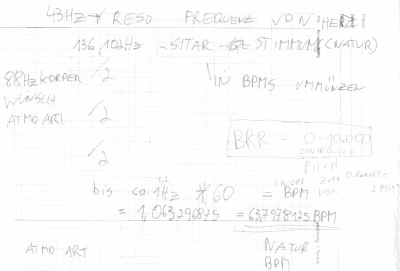 43Hz RESO FREQUENZ VON HERZ
136,102Hz - SITAR - STIMMUNG (NATUR)
88Hz KÖRPER /2
IN BPMS UMMÜNZEN
WUNSCH
ATMO ART /2
/2
BRR - 0-10.000
CONTROLLED
PITCH
bis ca. 1Hz * 60 = BPM VON
1,2
KNOPF ZUM 0.PUNKT
= 1,063296875 = 63,7978125 BPM
ATMO ART
NATUR
BPM